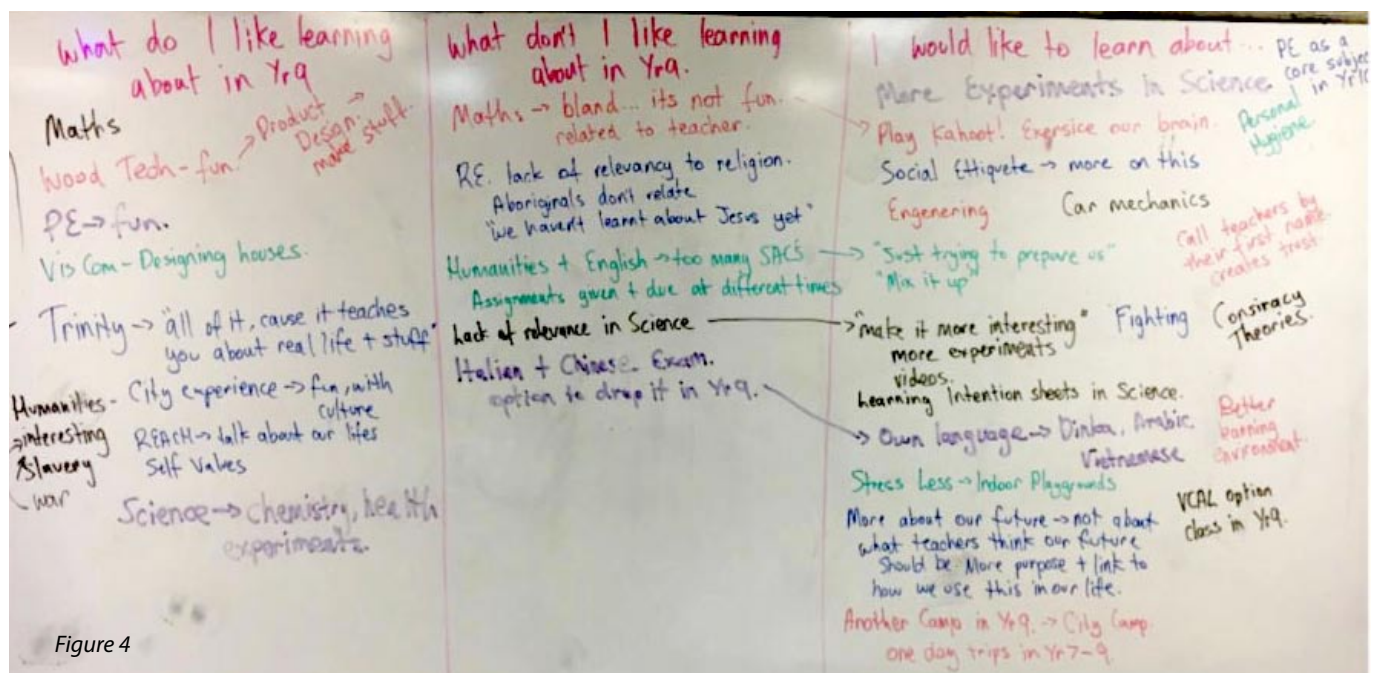 What do I like learning
about in Yr9
Maths
Wood Tech - fun. → Product
Design. →
make stuff.
PE → fun.
Vis Com - Designing houses.
Trinity → "all of it, cause it teaches
you about real life + stuff"
City experience → fun, with
culture
REACH → talk about our lifes
Self Values
Humanities -
→ interesting
Slavery
war
Science → chemistry, health
experiments.
What don't I like learning
about in Yr9.
Maths → bland... its not fun.
related to teacher.
R.E. lack of relevancy to religion.
Aboriginals don't relate
"we haven't learnt about Jesus yet"
Humanities + English → too many SACS
Assignments given + due at different times
Lack of relevance in Science
Italian + Chinese Exam.
option to drop it in Yr9.
I would like to learn about...
More Experiments in Science
PE as a
core subjec
in Yr10
Play Kahoot! Exersice our brain.
Personal
Hygiene.
Social Ettiquete → more on this
Engenering
Car mechanics
Call teachers by
their first name.
creates trust.
"Just trying to prepare us"
"Mix it up"
"make it more interesting"
more experiments
videos.
Fighting
Consiracy
Theories.
Learning Intention sheets in Science.
Own language → Dinka, Arabic
Vietnamese
Better
learning
environment.
Stress Less → Indoor Playgrounds
VCAL option
class in Yr9.
More about our future → not about
what teachers think our future
should be. More purpose + link to
how we use this in our life.
Another Camp in Yr9. → City Camp.
one day trips in Yr7-9.
Figure 4